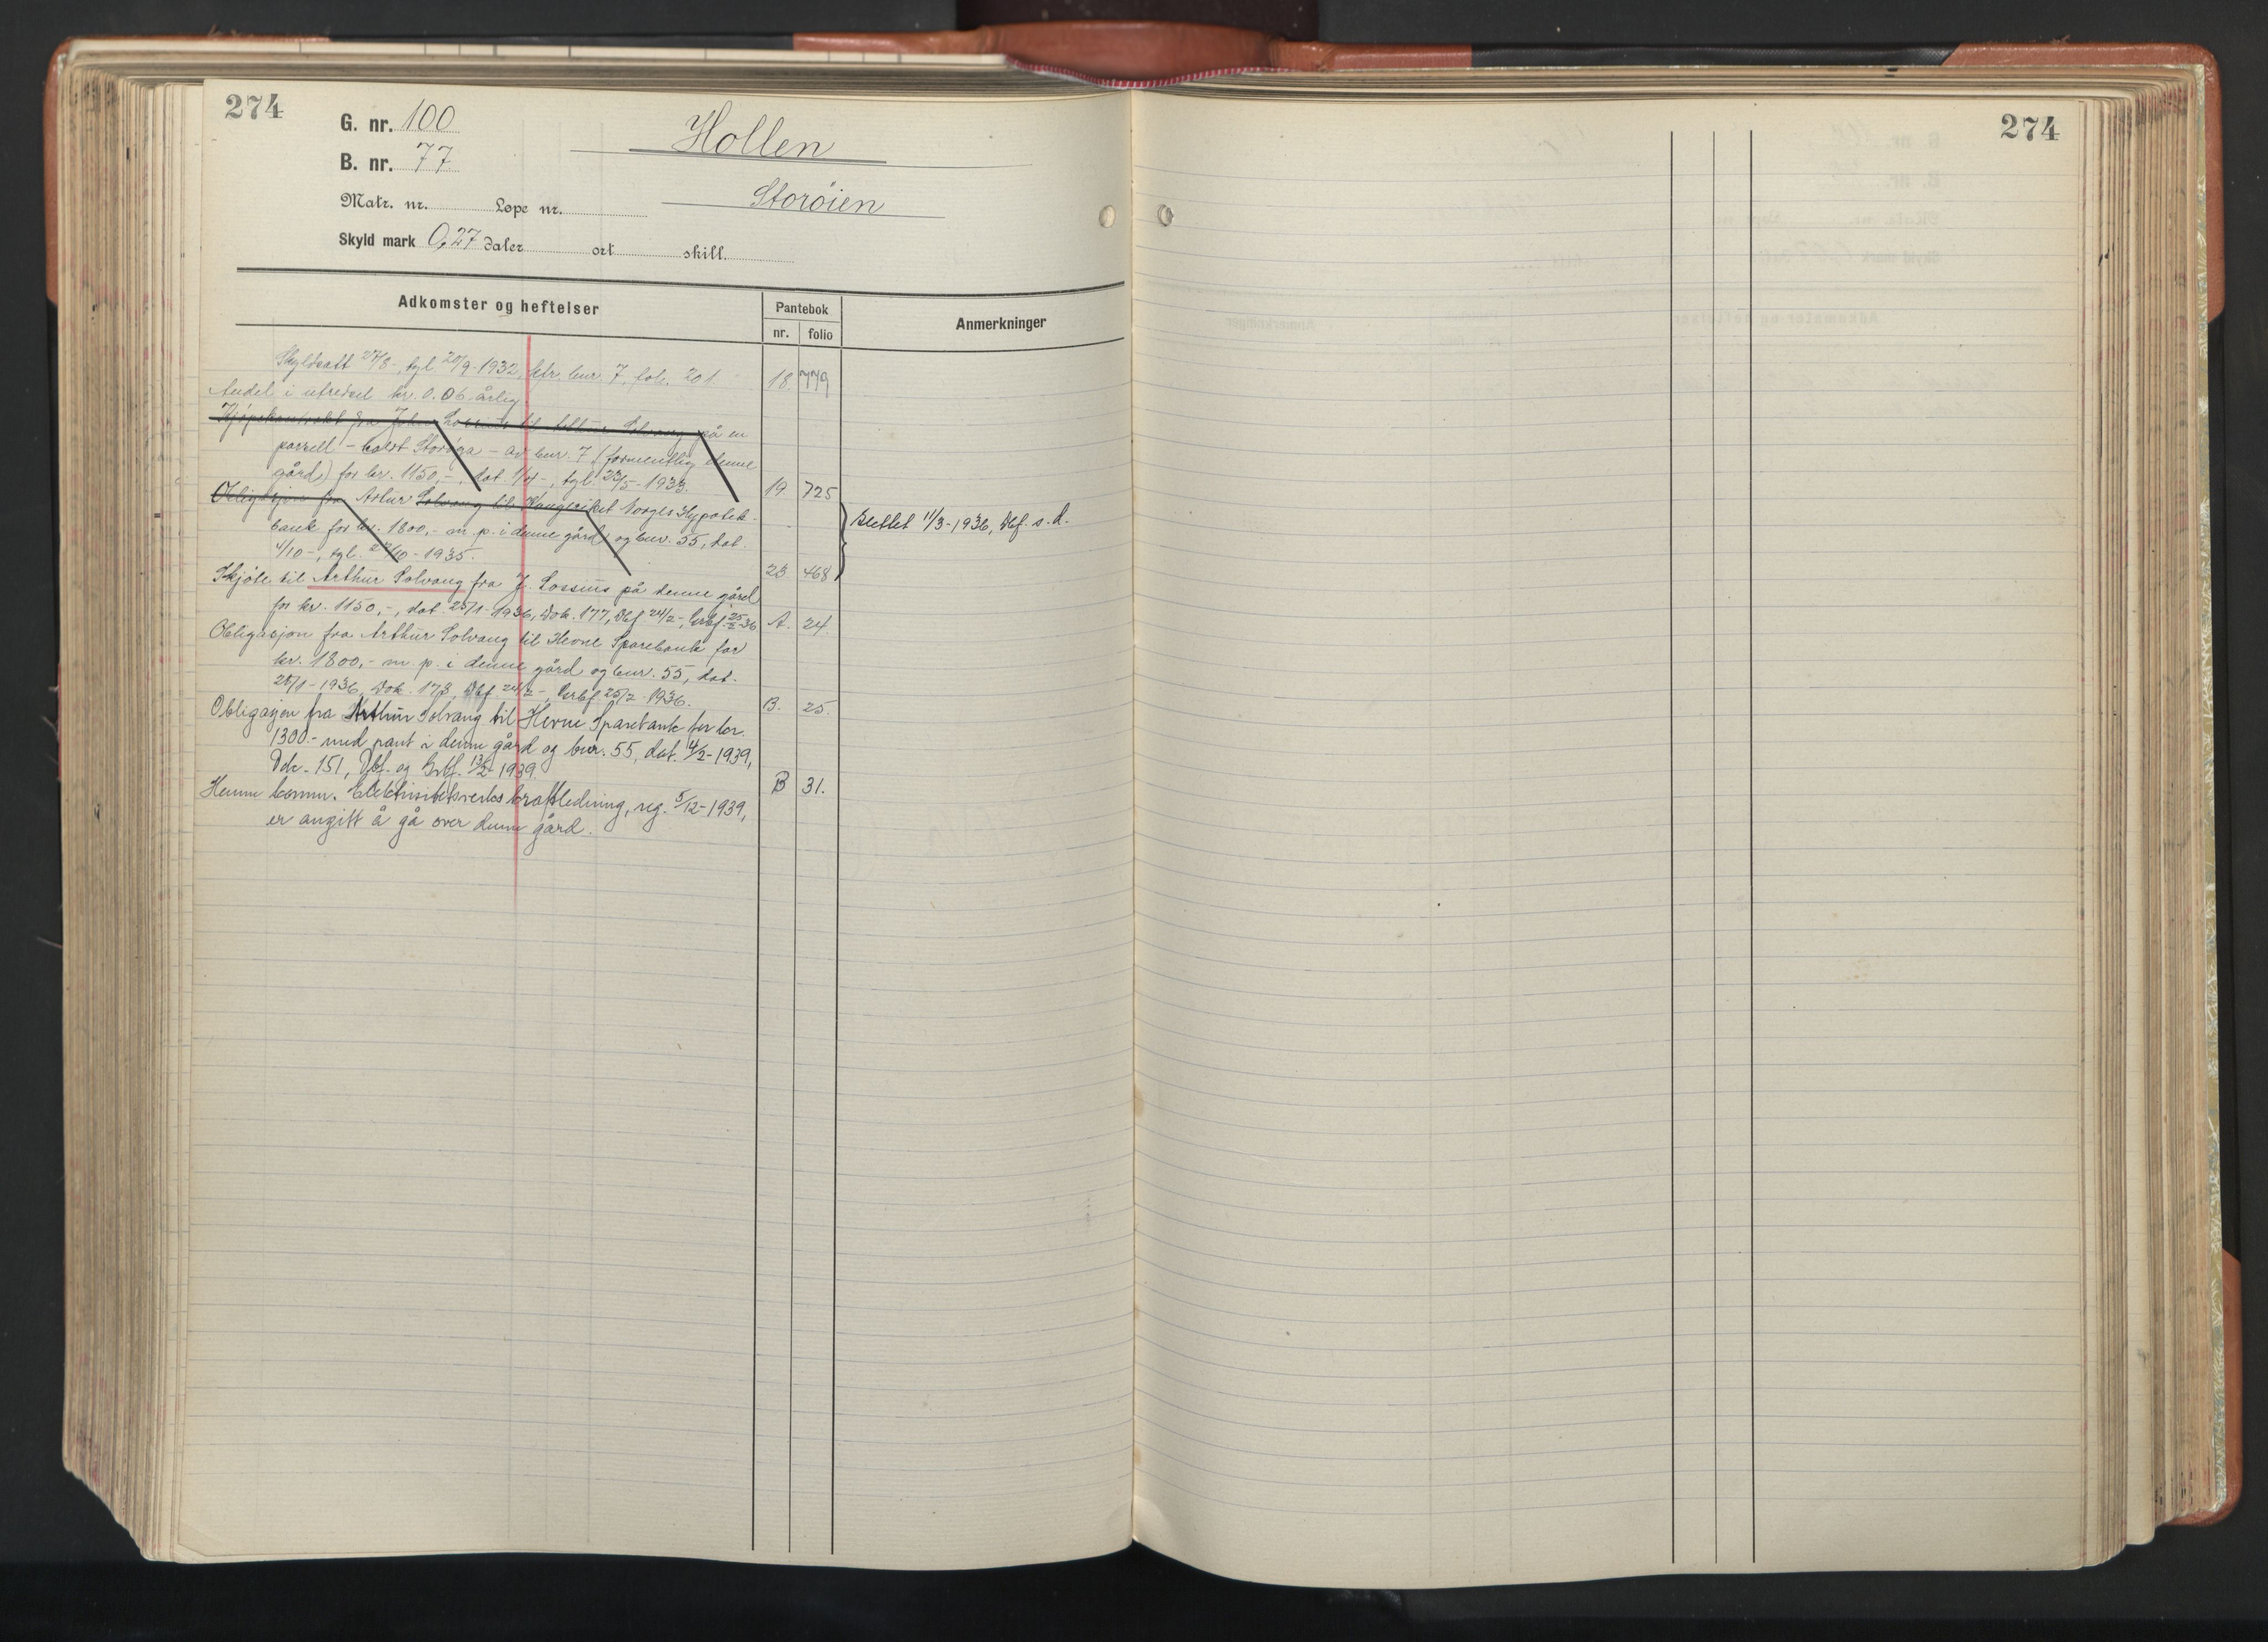 274
G. nr. 100
Hollen
274
B. nr. 77
Matr. nr. Løpe nr.
Storøien
Skyld mark 0,27 daler ort skill.
Adkomster og heftelser
Pantebok
nr. folio
Anmerkninger
Skyldsatt 27/8-, tgl. 20/9-1932, bnr. 7, fol. 201. 18. 779
Andel i utredsel kr. 0.06 årlig
Kjøpekontrakt fra John Lossius til Arthur Solvang på en
parzell - kaldt Storøra - av bnr. 7 (formentlig denne
gård) for kr. 1150,-, dat. 1/4-, tgl. 23/5-1933. 19. 725
Obligasjon fra Artur Solvang til Kongeriket Norges Hypotek-
bank for kr. 1800,- m. p. i denne gård og bnr. 55, dat.
4/10-, tgl. /10-1935. 23. 468
Slettet 11/3-1936, Dbf. s. d.
Skjøte til Arthur Solvang fra J. Lossius på denne gård
for kr. 1150,-, dat. 25/1-1936, Dok. 177, Dbf 24/2-, Grbf. 25/2-36 A. 24.
Obligasjon fra Arthur Solvang til Hevne Sparebank for
kr. 1800,- m. p. i denne gård og bnr. 55, dat.
25/1-1936, Dok. 178, Dbf 24/2-, Grbf. 25/2-1936. B. 25.
Obligasjon fra Arthur Solvang til Hevne Sparebank for kr.
1300.- med pant i denne gård og bnr. 55, dat. 4/2-1939,
Dok. 151, Dbf. og Grbf. 13/2-1939. B 31.
Hemne komm. Elektrisitetsverks kraftledning, reg. 5/12-1939,
er angitt å gå over denne gård.